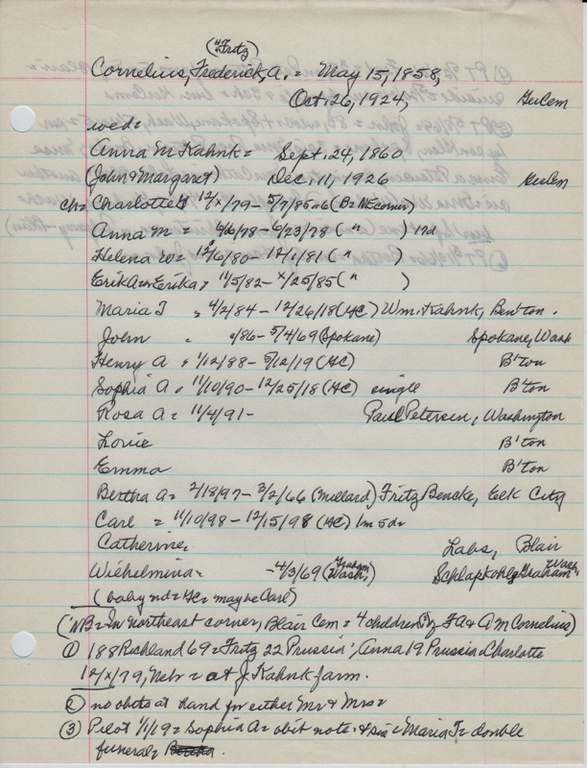 ("Fritz)
Cornelius, Frederick, A. = May 15, 1858,
Oct. 26, 1924, GerCem
wed =
Anna M Kahnk = Sept. 24, 1860
(John & Margaret) Dec. 11, 1926 GerCem
ch = Charlotte 12/x/79 - 5/7/85 (B = NE corner)
Anna M = 4/6/78 - 6/23/78 ( " ) 17d
Helena W = 12/6/80 - 12/1/81 ( " )
Erika = 11/5/82 - x/25/85 ( " )
Maria T 4/2/84 - 12/26/18 (GC) Wm. Kahnk, Ben'ton.
John /86 - 5/4/69 (Spokane) Spokane, Wash
Henry A = 1/12/88 - 5/12/19 (GC) B'ton
Sophia A = 11/10/90 - 12/25/18 (GC) single B'ton
Rosa A = 11/4/91 - Paul Petersen, Washington
Louie B'ton
Emma B'ton
Bertha A = 2/18/97 - 3/2/66 (Millard) Fritz Bencke, Elk City
Carl = 11/10/98 - 12/15/98 (GC) 1m 5d =
Catherine = Labs, Blair
Wilhelmina = - 4/3/69 (Graham Wash.) Schlapkohl, Graham Wash.
(baby nd = GC = maybe Carl)
(NB = In northeast corner, Blair Cem = 4 children of FA & AM Cornelius)
① 188 Richland 69 = Fritz 22 Prussia; Anna 19 Prussia = Charlotte
12/x/79, Nebr = at J. Kahnk farm.
② no obits at hand for either Mr & Mrs =
③ Pilot 1/1/19 = Sophia A = obit note, & sis = Maria T = double
funeral =